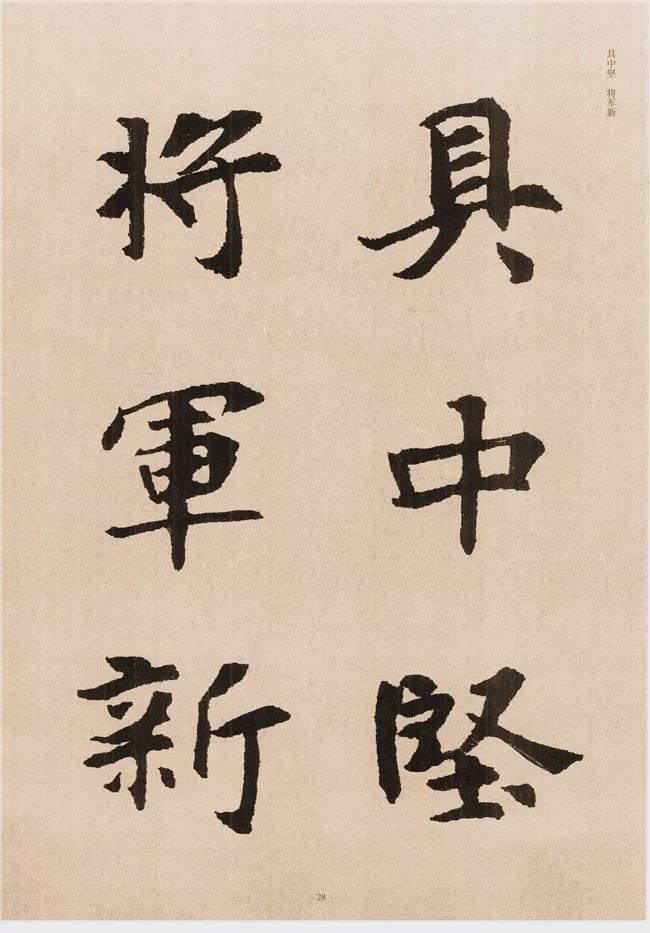 具中堅
將軍新
具中坚 将军新
28